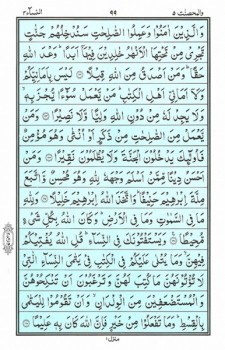 والمحصنت ٥ ٩٩ النسآء ٤
وَالَّذِيْنَ اٰمَنُوْا وَعَمِلُوا الصّٰلِحٰتِ سَنُدْخِلُهُمْ جَنّٰتٍ
تَجْرِيْ مِنْ تَحْتِهَا الْاَنْهٰرُ خٰلِدِيْنَ فِيْهَاۤ اَبَدًا ؕ وَعْدَ اللّٰهِ
حَقًّا ؕ وَمَنْ اَصْدَقُ مِنَ اللّٰهِ قِيْلًا ۝ لَيْسَ بِاَمَانِيِّكُمْ
وَلَاۤ اَمَانِيِّ اَهْلِ الْكِتٰبِ ؕ مَنْ يَّعْمَلْ سُوْٓءًا يُّجْزَ بِهٖ
وَلَا يَجِدْ لَهٗ مِنْ دُوْنِ اللّٰهِ وَلِيًّا وَّلَا نَصِيْرًا ۝ وَمَنْ
يَّعْمَلْ مِنَ الصّٰلِحٰتِ مِنْ ذَكَرٍ اَوْ اُنْثٰى وَهُوَ مُؤْمِنٌ
فَاُولٰٓئِكَ يَدْخُلُوْنَ الْجَنَّةَ وَلَا يُظْلَمُوْنَ نَقِيْرًا ۝ وَمَنْ
اَحْسَنُ دِيْنًا مِّمَّنْ اَسْلَمَ وَجْهَهٗ لِلّٰهِ وَهُوَ مُحْسِنٌ وَّاتَّبَعَ
مِلَّةَ اِبْرٰهِيْمَ حَنِيْفًا ؕ وَاتَّخَذَ اللّٰهُ اِبْرٰهِيْمَ خَلِيْلًا ۝ وَلِلّٰهِ
مَا فِي السَّمٰوٰتِ وَمَا فِي الْاَرْضِ ؕ وَكَانَ اللّٰهُ بِكُلِّ شَيْءٍ
مُّحِيْطًا ۝ وَيَسْتَفْتُوْنَكَ فِي النِّسَآءِ ؕ قُلِ اللّٰهُ يُفْتِيْكُمْ
فِيْهِنَّ ۙ وَمَا يُتْلٰى عَلَيْكُمْ فِي الْكِتٰبِ فِيْ يَتٰمَى النِّسَآءِ الّٰتِيْ
لَا تُؤْتُوْنَهُنَّ مَا كُتِبَ لَهُنَّ وَتَرْغَبُوْنَ اَنْ تَنْكِحُوْهُنَّ
وَالْمُسْتَضْعَفِيْنَ مِنَ الْوِلْدَانِ ۙ وَاَنْ تَقُوْمُوْا لِلْيَتٰمٰى
بِالْقِسْطِ ؕ وَمَا تَفْعَلُوْا مِنْ خَيْرٍ فَاِنَّ اللّٰهَ كَانَ بِهٖ عَلِيْمًا ۝
منزل ١